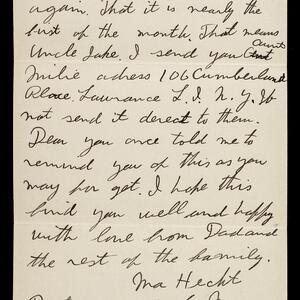 again. That it is nearly the
first of the month. That means
Uncle Jake. I send you Aunt
Milie adress 106 Cumberland
Place, Lawrance L.I. N.Y. If
not send it derect to them.
Dear you once told me to
remind you of this as you
may for get. I hope this
find you well and happy
with love from Dad and
the rest of the family.
Ma Hecht